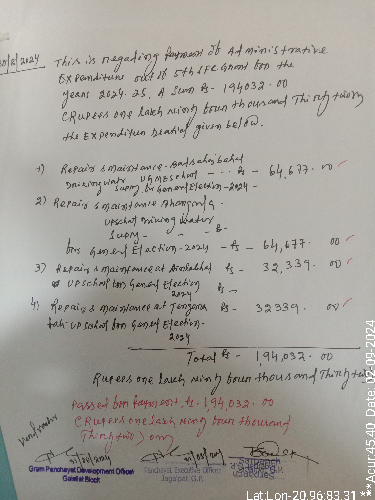 30/8/2024 This is regarding payment of Administrative
Expenditure out of 5th SFC Grant for the
years 2024-25. A Sum Rs- 194032.00
(Rupees one lakh ninty four thousand Thirty two only
the Expenditure details given below.
1) Repair & maintance
drinking water UGMESchool - .. Rs - 64,677.00
Supply for General Election-2024-
2) Repair & maintance
upschool Drining water
Supply - - -
for General Election-2024 - Rs - 64,677.00
3) Repairs & maintance at
upschool for General Election Rs - 32,339.00
2024 Rs -
4) Repairs & maintance at Tangara Rs - 32339.00
upschool for General Election-
2024
Total Rs - 1,94,032.00
Rupees one lakh ninty four thousand Thirty two
Passed for payment Rs. 1,94,032.00
(Rupees one lakh ninty four thousand
Thirty two) only
Gram Panchayat Development Officer
Block
Panchayat Executive Officer
Jagatpat, G.P.
Sarpanch
***Acur:45.40 Date:02-09-2024
Lat:Lon-20.96:83.31